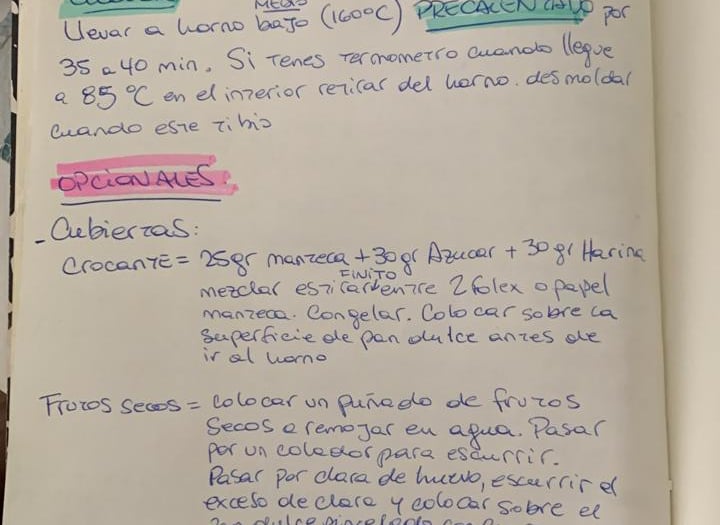 MEDIO
Llevar a horno bajo (160°C) PRECALENTADO por
35 a 40 min. Si tenes termometro cuando llegue
a 85°C en el interior retirar del horno. desmoldar
cuando este tibio
OPCIONALES.
- Cubiertas:
CROCANTE = 25gr manteca + 30gr Azucar + 30gr Harina
FINITO
mezclar estirar entre 2 folex o papel
manteca. Congelar. Colocar sobre la
superficie de pan dulce antes de
ir al horno
FRUTOS SECOS = colocar un puñado de frutos
secos a remojar en agua. Pasar
por un colador para escurrir.
Pasar por clara de huevo, escurrir el
exceso de clara y colocar sobre el
pan dulce pincelado con